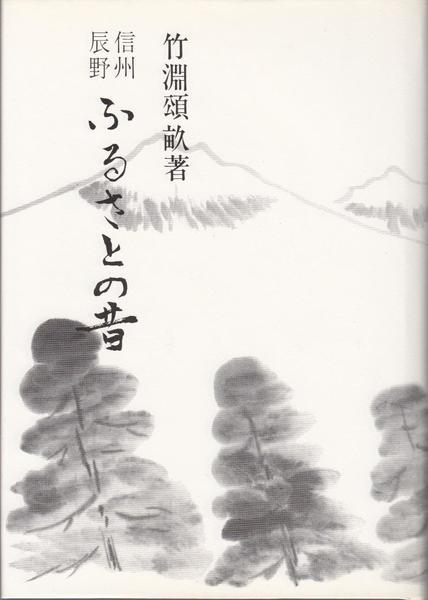 竹淵頌畝著
信州
辰野
ふるさとの昔